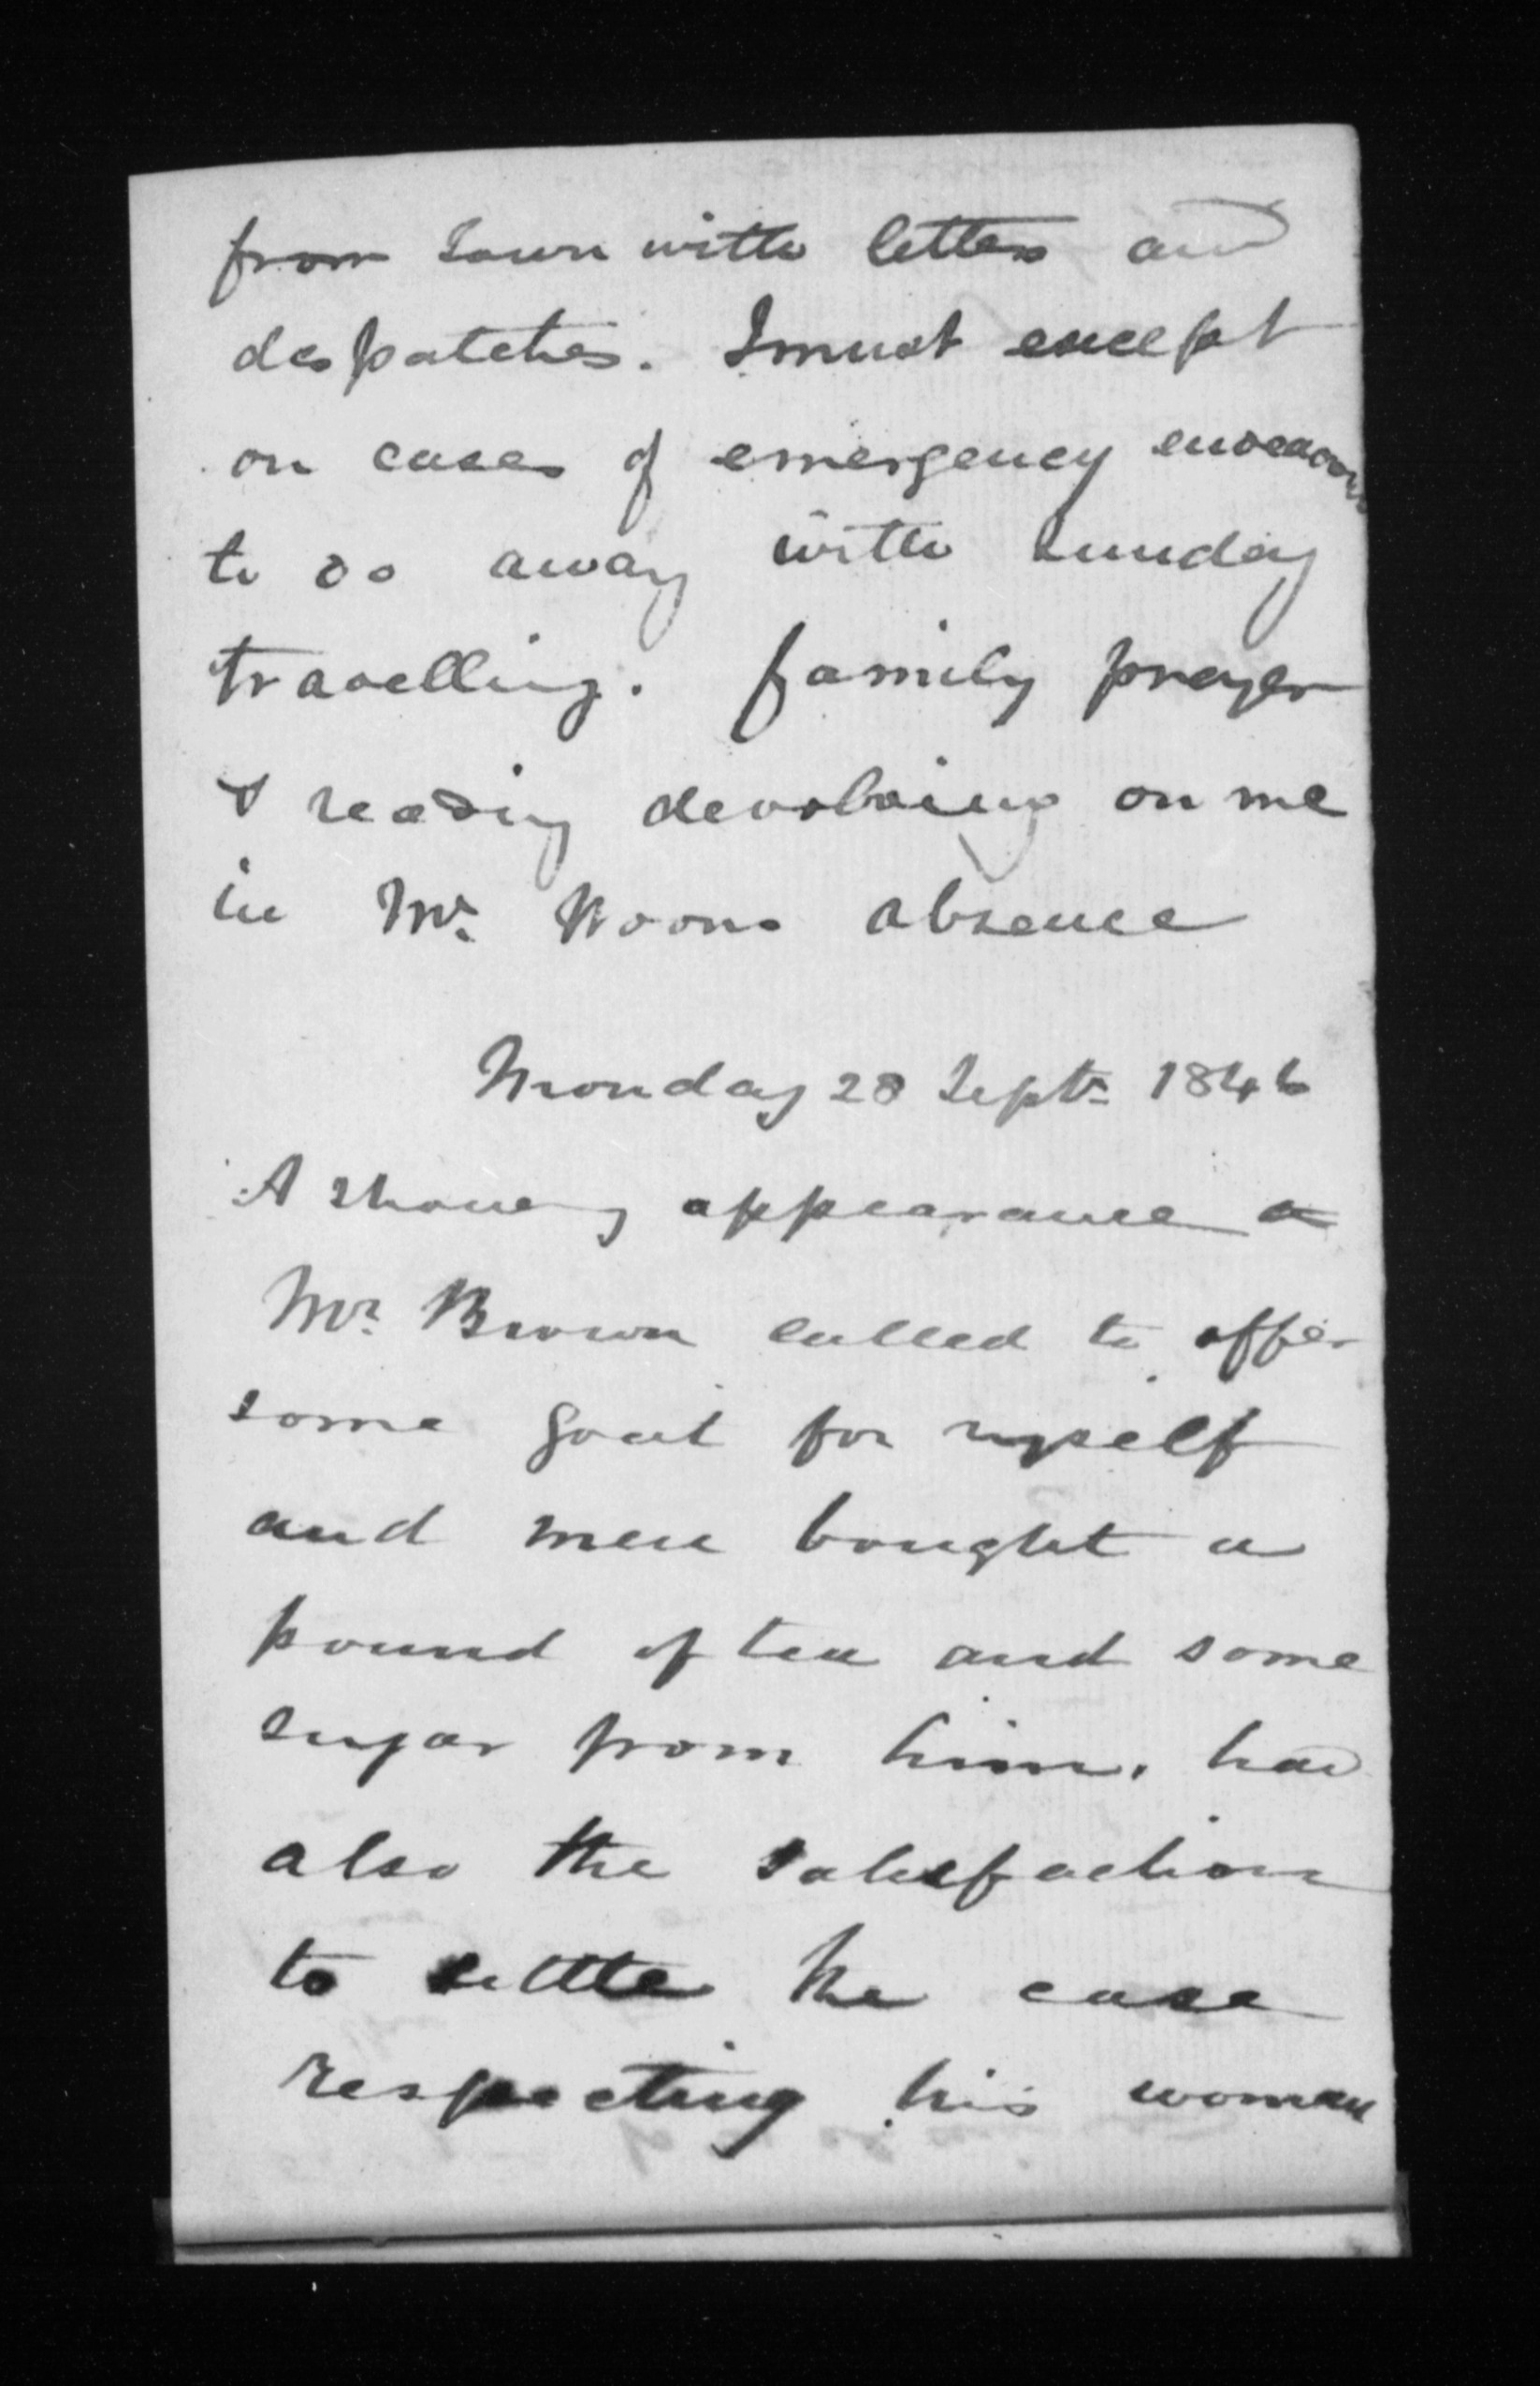 from town with letters and
despatches. I must except
on cases of emergency endeavour
to do away with Sunday
travelling. family prayer
& reading devolving on me
in Mr. Noons absence
Monday 28 Septr. 1846
A showery appearance a
Mr. Brown called to offer
some goat for myself
and men bought a
pound of tea and some
sugar from him. had
also the satisfaction
to settle the case
respecting his woman